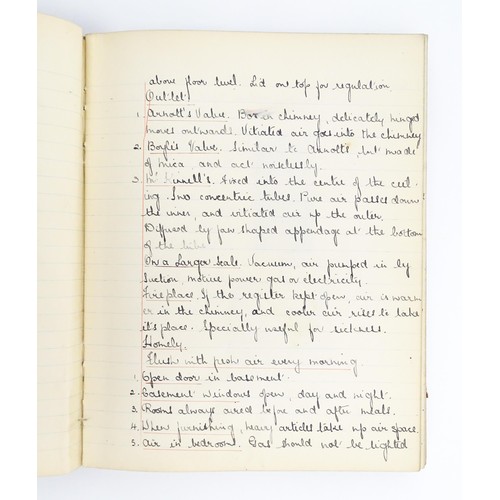 above floor level. Lid on top for regulation
Outlet
1. Arnott's Valve. Box in chimney, delicately hinged
moves outwards. Vitiated air goes into the chimney
2. Boyle's Valve. Similar to Arnott's, but made
of mica and act noiselessly.
3. Mc Kinnell's. Fixed into the centre of the ceil-
ing. Two concentric tubes. Pure air passes down
the inner, and vitiated air up the outer.
Diffused by fan shaped appendage at the bottom
of the tube
On a Larger Scale. Vacuum, air pumped in by
suction, motive power gas or electricity.
Fireplace. If the register kept open, air is warm
er in the chimney, and cooler air rises to take
it's place. Specially useful for sickness.
Homely.
Flush with fresh air every morning
1. Open door in basement.
2. Casement windows open, day and night.
3. Rooms always aired before and after meals.
4. When furnishing, heavy articles take up air space.
5. Air in bedroom. Gas should not be lighted